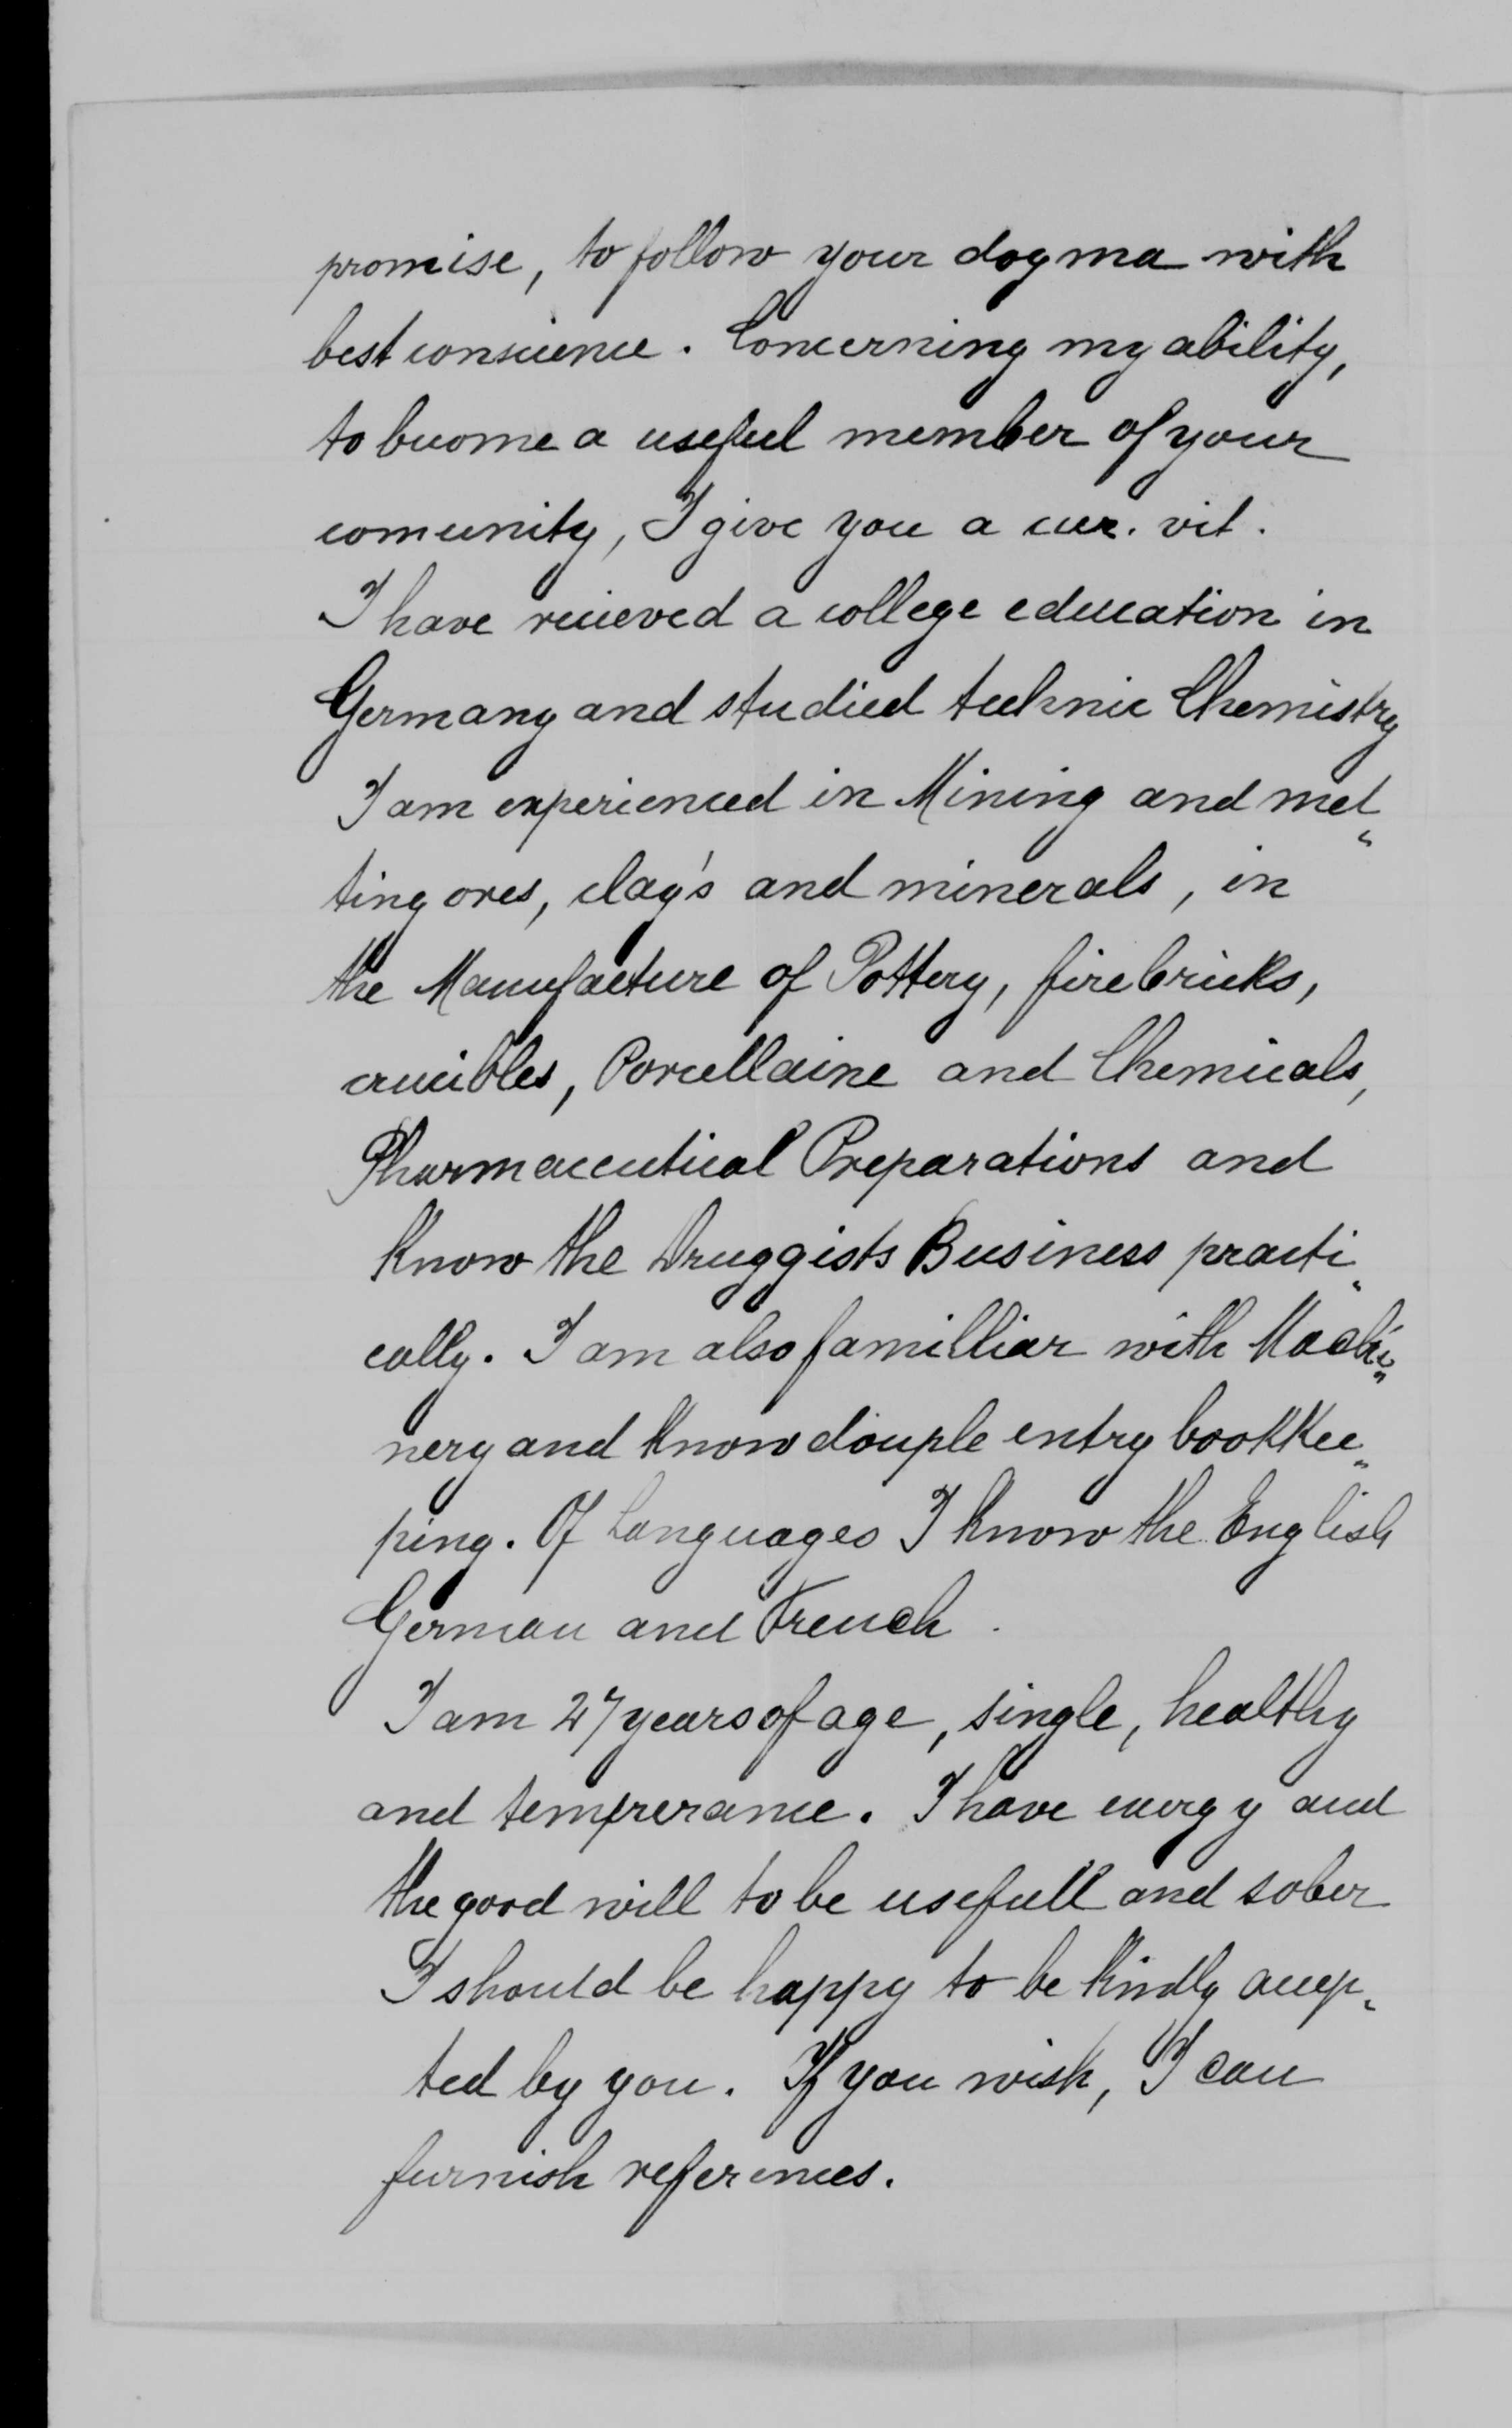 promise, to follow your dogma with
best conscience. Concerning my ability,
to become a useful member of your
comunity, I give you a cur. vit.
I have recieved a college education in
Germany and studied technic Chemistry
I am experienced in Mining and mel„
ting ores, clay's and minerals, in
the Manufacture of Pottery, firebricks,
crucibles, Porcellaine and Chemicals,
Pharmaceutical Preparations and
know the Druggists Business practi„
cally. I am also familliar with Machi„
nery and know douple entry bookkee„
ping. Of Languages I know the English
German and French.
I am 27 years of age, single, healthy
and temperance. I have energy and
the good will to be usefull and sober
I should be happy to be kindly accep„
ted by you. If you wish, I can
furnish references.